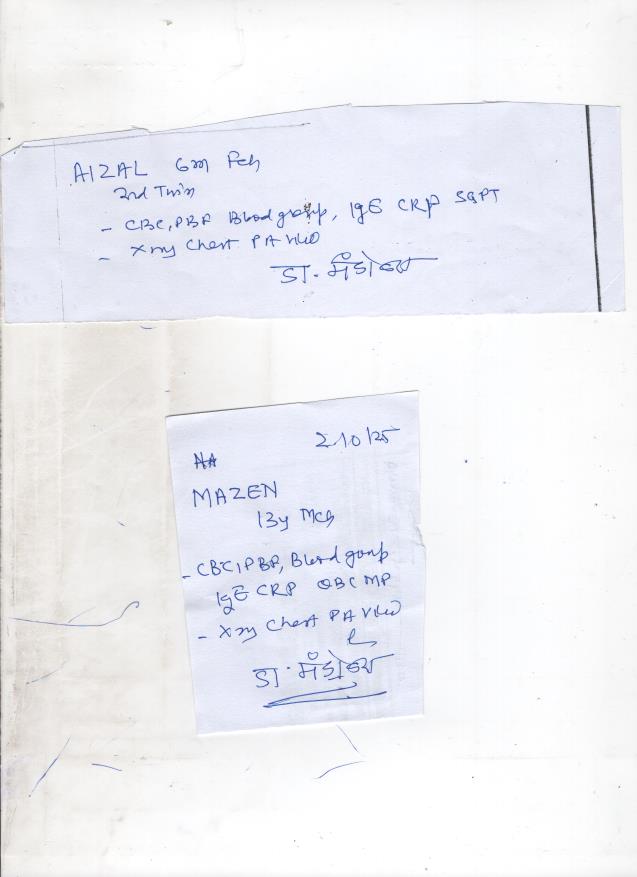 AIZAL 6m Fch
2nd Twin
- CBC, PBF Blood group, IgE CRP SGPT
- Xray Chest PA View
डा. मंडोव्य
2/10/25
MAZEN
13y Mch
- CBC, PBF, Blood group
IgE CRP QBC MP
- Xray Chest PA View
डा. मंडोव्य